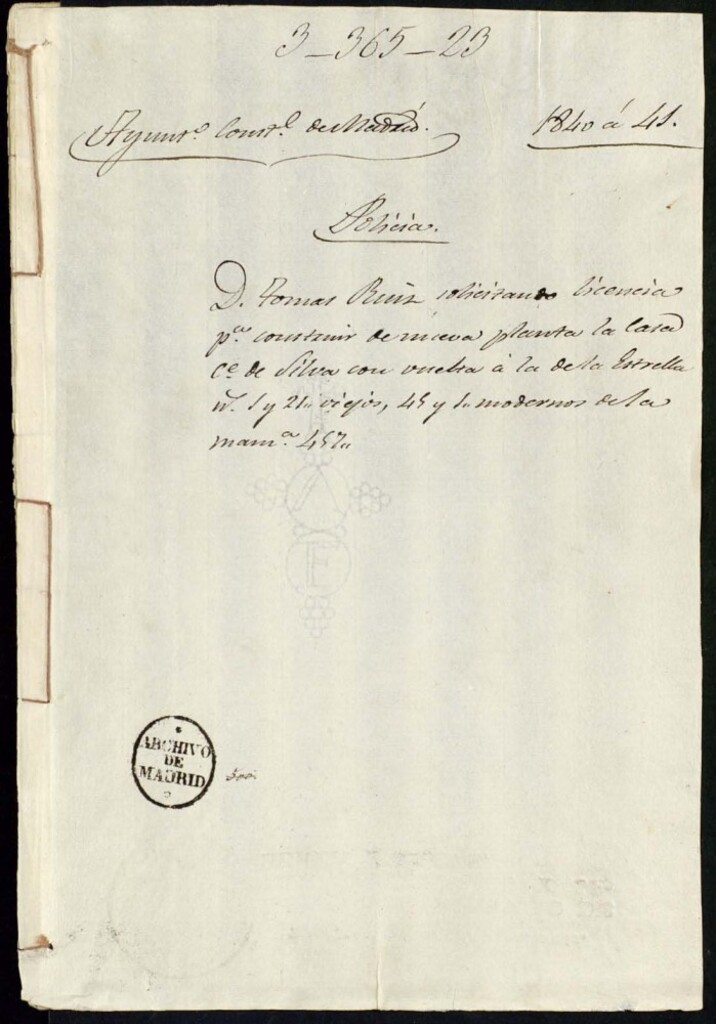 3-365-23
Ayunt.º Const.l de Madrid.
1840 á 41.
Policia.
D. Tomas Ruiz solicitando licencia
p.a construir de nueva planta la Casa
C.e de Silva con vuelta à la de la Estrella
n.s 1 y 21,, viejos, 45 y 1,, modernos de la
manz.a 457,,
ARCHIVO
DE
MADRID